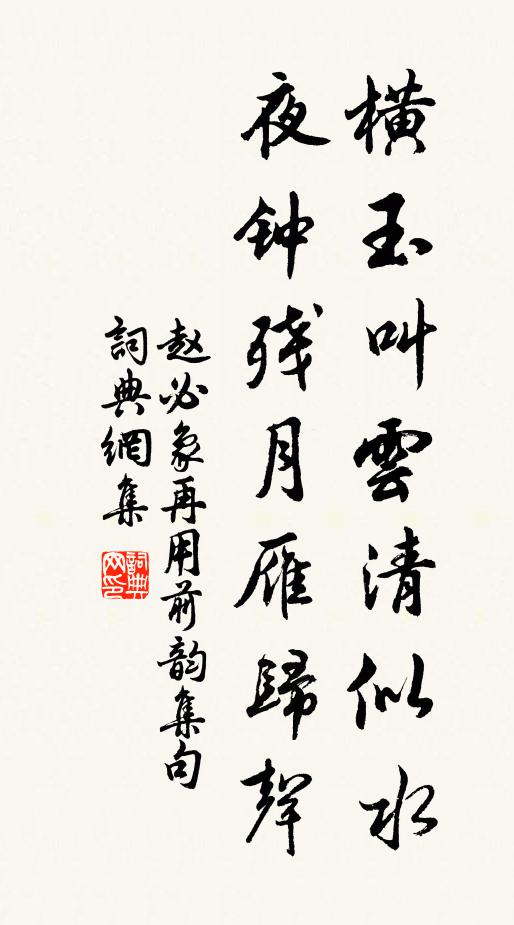 橫玉叫雲清似水
夜钟残月雁歸聲
赵必象再用前韵集句
詞典網集
詞典
网印